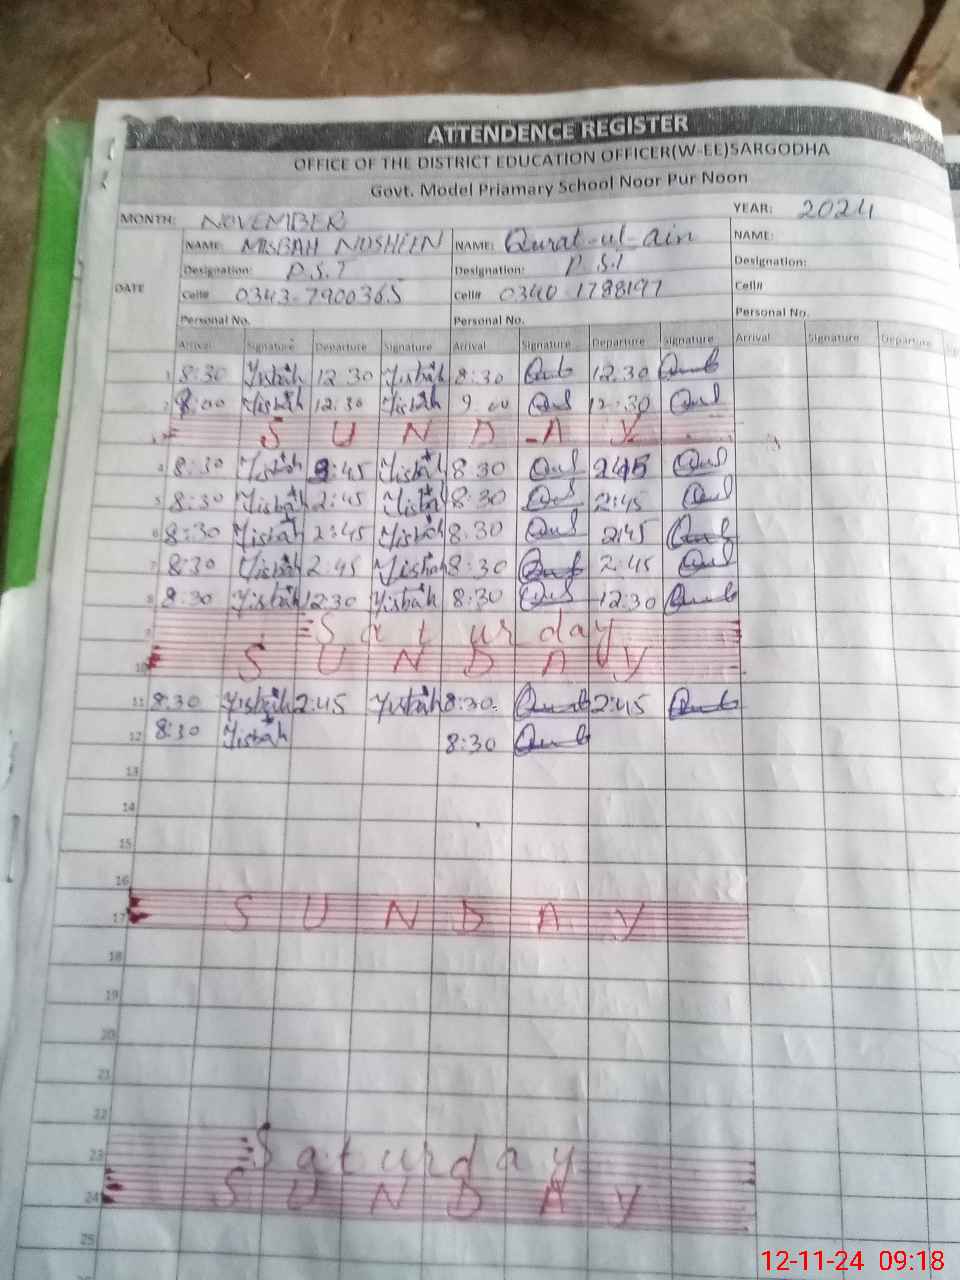 ATTENDENCE REGISTER
OFFICE OF THE DISTRICT EDUCATION OFFICER(W-EE)SARGODHA
Govt. Model Priamary School Noor Pur Noon
MONTH: NOVEMBER YEAR: 2024
DATE NAME: MISBAH NOSHEEN NAME: Qurat-ul-Ain NAME:
Designation: P.S.T Designation: P.S.T Designation:
Cell# 0343-7900365 Cell# 0340-1788197 Cell#
Personal No. Personal No. Personal No.
Arrival Signature Departure Signature Arrival Signature Departure Signature Arrival Signature Departure
1 8:30 Misbah 12:30 Misbah 8:30 Qub 12:30 Qurat
2 8:00 Misbah 12:30 Misbah 9:00 Qub 12:30 Qub
3 SUNDAY
4 8:30 Misbah 2:45 Misbah 8:30 Qub 2:45 Qub
5 8:30 Misbah 2:45 Misbah 8:30 Qub 2:45 Qub
6 8:30 Misbah 2:45 Misbah 8:30 Qub 2:45 Qub
7 8:30 Misbah 2:45 Misbah 8:30 Qub 2:45 Qub
8 8:30 Misbah 12:30 Misbah 8:30 Qub 12:30 Qub
9 Saturday
10 SUNDAY
11 8:30 Misbah 2:45 Misbah 8:30 Qub 2:45 Qub
12 8:30 Misbah 8:30 Qub
13
14
15
16
17 SUNDAY
18
19
20
21
22
23 Saturday
24 SUNDAY
25
12-11-24 09:18